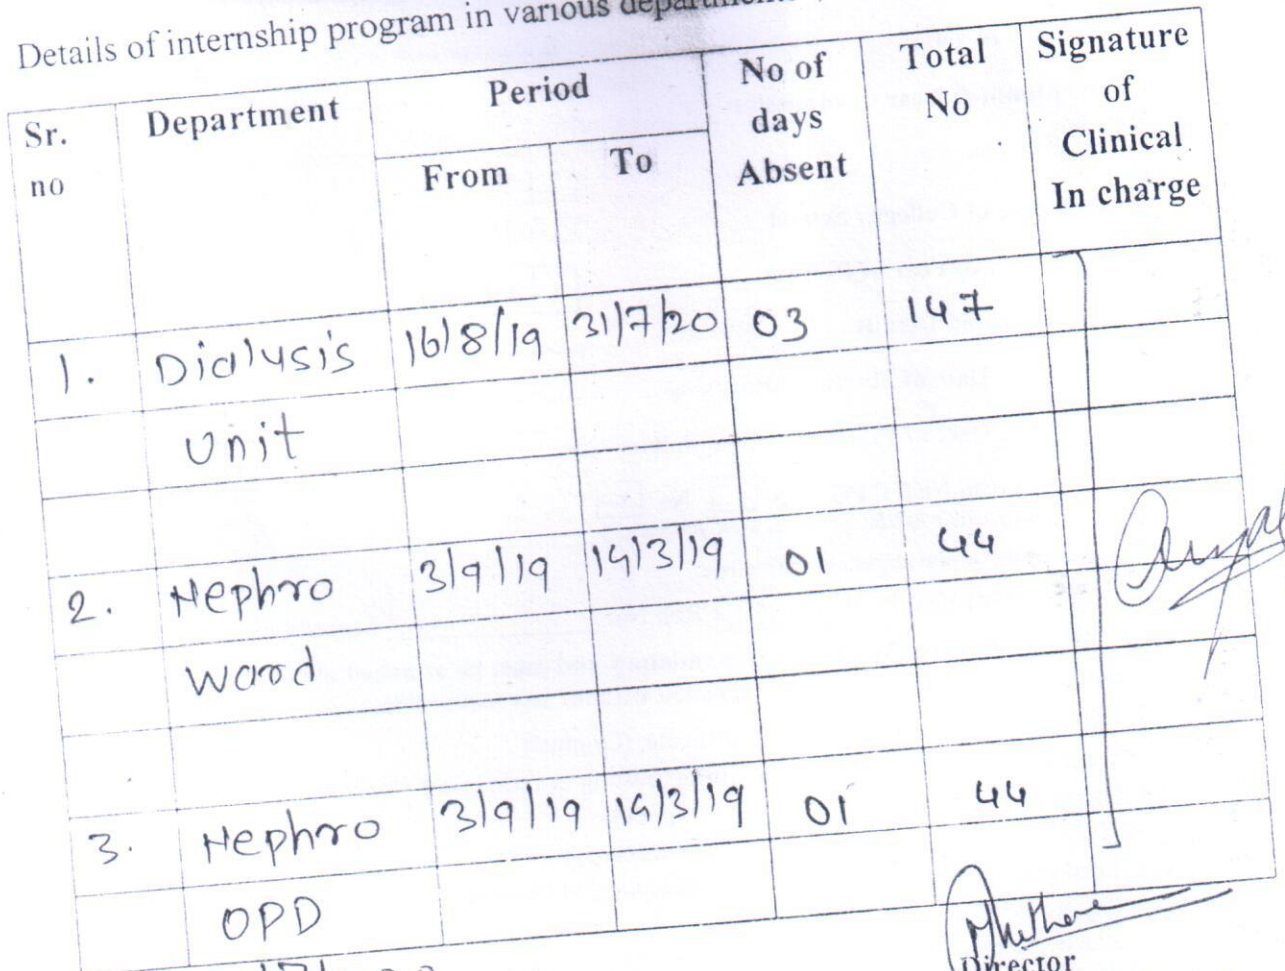 Details of internship program in various
Sr. no Department Period No of days Absent Total No Signature of Clinical In charge
From To
1. Dialysis Unit 16/8/19 31/7/20 03 147
2. Nephro Ward 3/9/19 14/3/19 01 44
3. Nephro OPD 3/9/19 14/3/19 01 44
Director